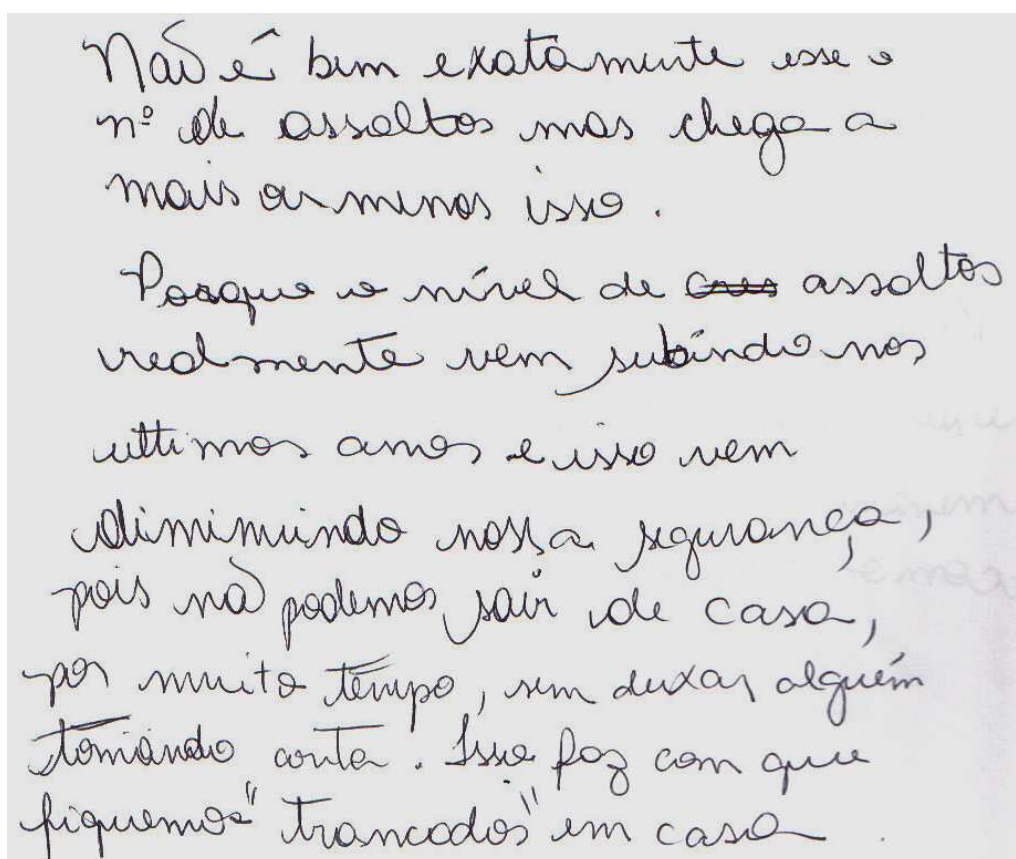 Não é bem exatamente esse o
nº de assaltos mas chega a
mais ou menos isso.
Porque o nível de assaltos
realmente vem subindo nos
ultimos anos e isso vem
diminuindo nossa segurança,
pois não podemos sair de casa,
por muito tempo, sem deixar alguém
tomando conta. Isso faz com que
fiquemos "trancados" em casa.